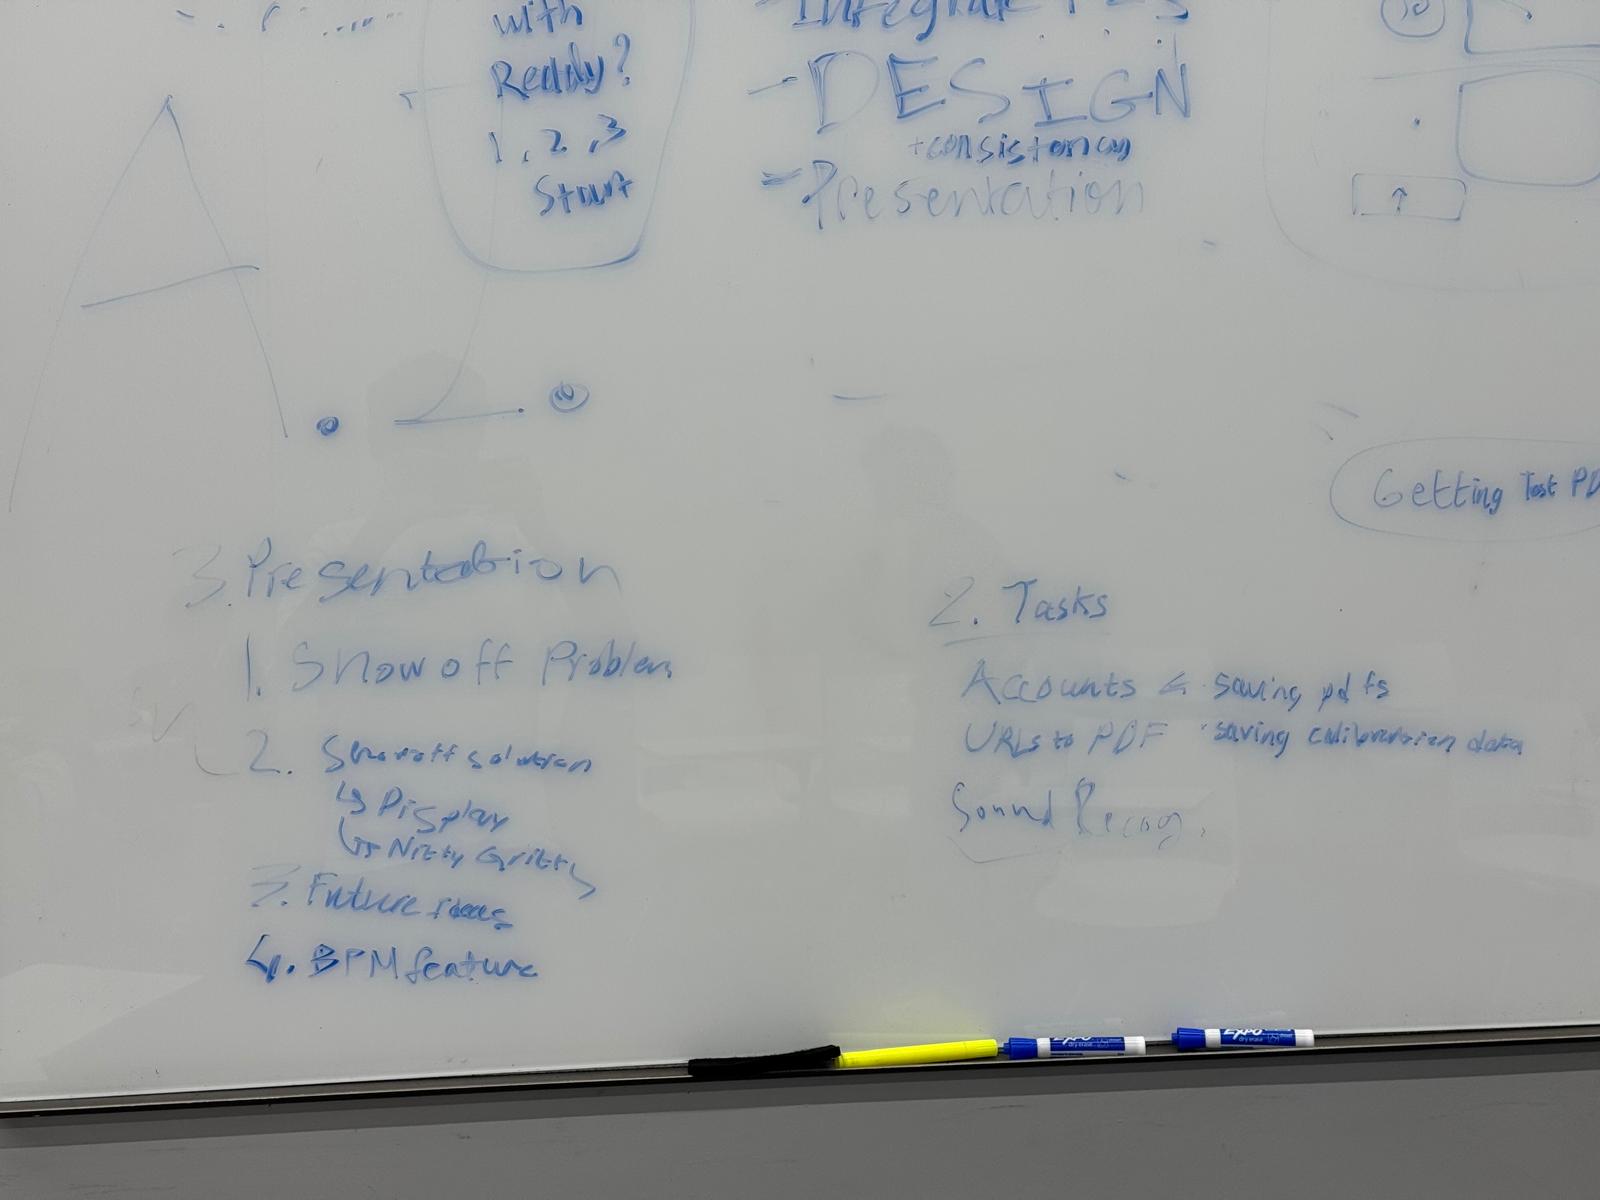 with
Ready?
1, 2, 3
Start
- DESIGN
+ consistancy
- Presentation
↑
Getting Test
3. Presentation
1. Show off Problem
2. Show off solution
↳ Display
↳ Nitty Gritty
3. Future ideas
4. BPM feature
2. Tasks
Accounts ← · saving pdfs
URLs to PDF · saving calibration data
Sound Recog.
EXPO
dry erase
EXPO
dry erase